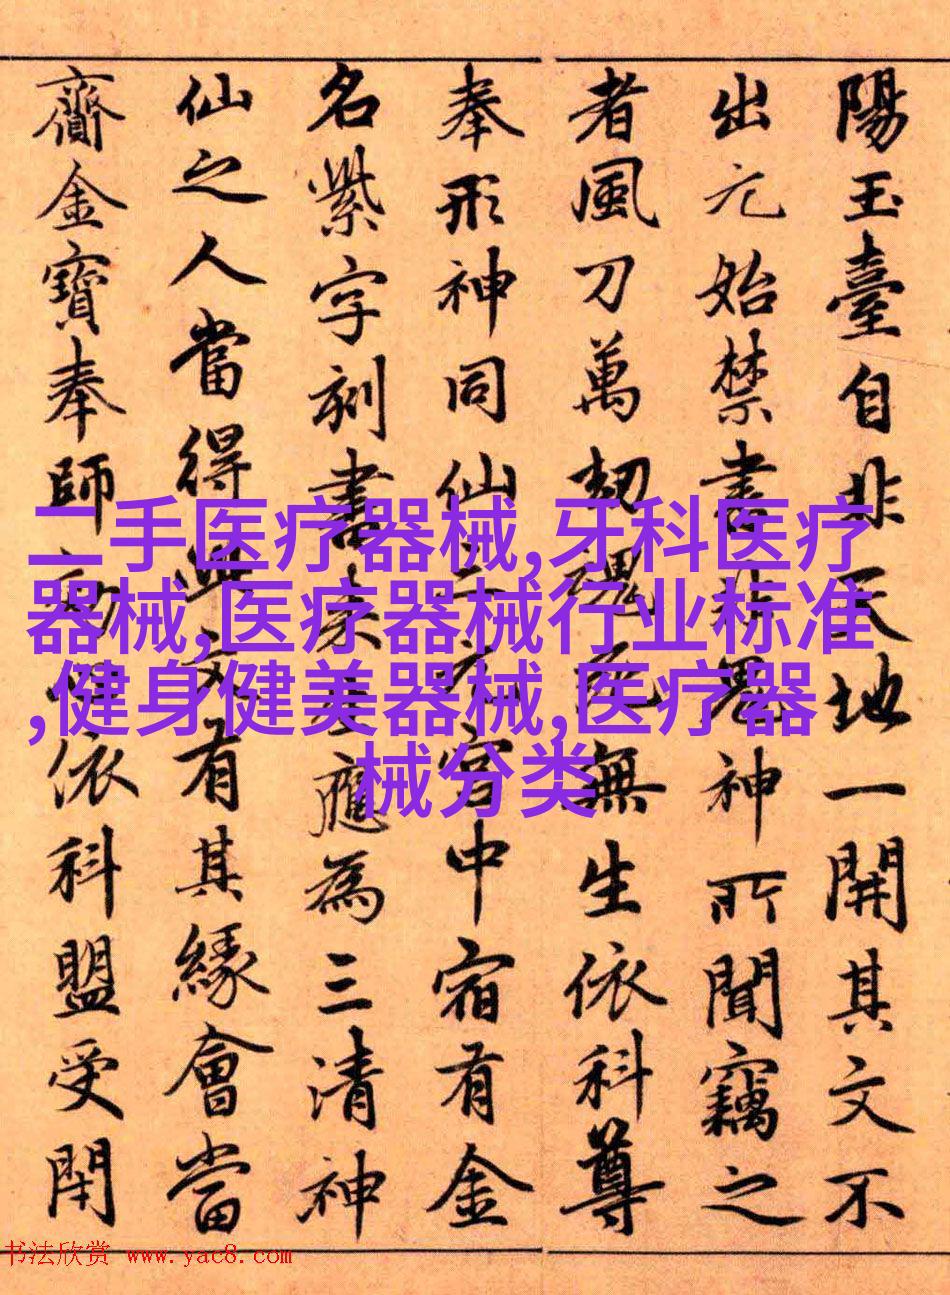 陽玉臺自非天地一開其文不
出元始禁書非鬼神所聞竊之
者風刀萬劫魂死無生依科尊
奉形神同仙三元宮中宿有金
名紫字刻書來生應為三清神
仙之人當得文有其緣會當
齎金寶奉師依科盟受閇
二手医疗器械,牙科医疗
器械,医疗器械行业标准
,健身健美器械,医疗器
械分类
书法欣赏 www.yac8.com